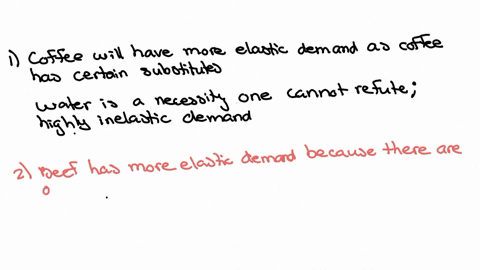 1) Coffee will have more elastic demand as coffee
has certain substitutes
water is a necessity one cannot refute;
highly inelastic demand
2) Beef has more elastic demand because there are
o